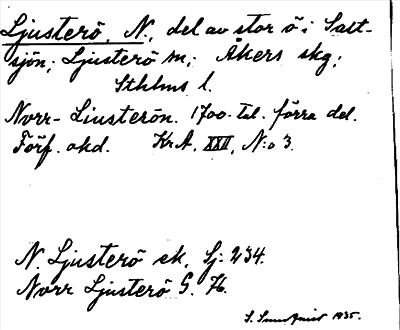 Ljusterö, N., del av stor ö i Salt-
sjön; Ljusterö sn; Åkers skg;
Sthlms l.
Norr-Liusterön. 1700-tal. förra del.
Förf. okd. KrA. XXII, N:o 3.
N. Ljusterö ek. Sj: 234.
Norr Ljusterö G. 76.
S. 1935.